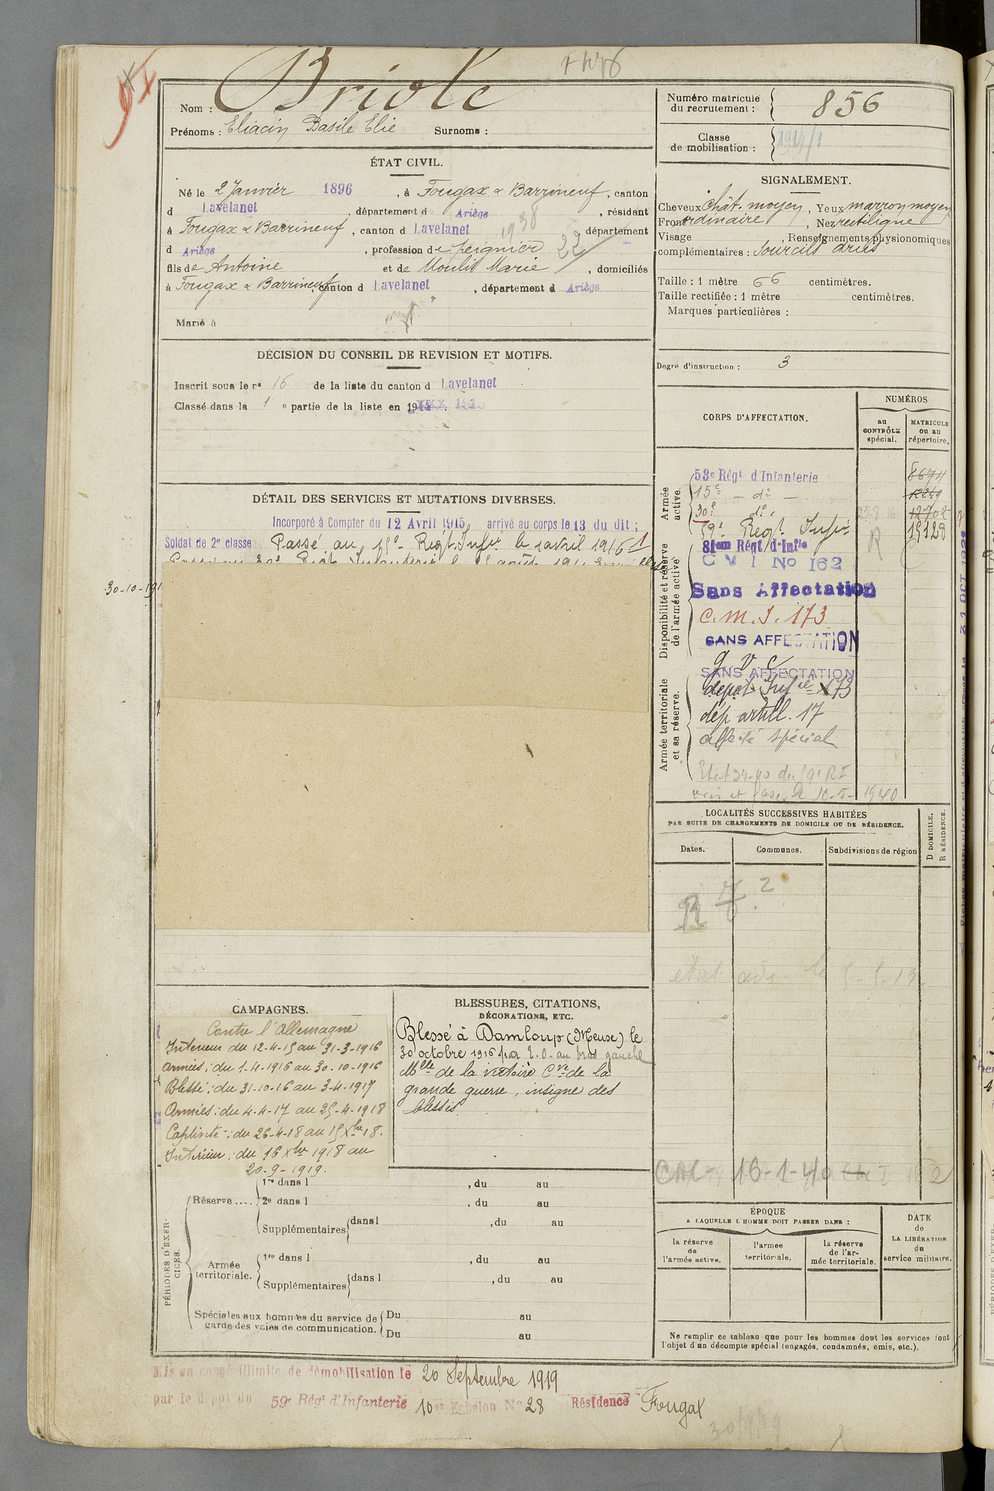 Briole
Nom :
Prénoms : Eliacin Basile Elie Surnoms :
Numéro matricule
du recrutement : 856
Classe
de mobilisation :
ÉTAT CIVIL.
Né le 2 Janvier 1896, à Fougax & Barrineuf, canton
d Lavelanet, département d Ariège, résidant
à Fougax & Barrineuf, canton d Lavelanet département
d Ariège, profession de peignier
22
1938
fils de Antoine et de Moulis Marie, domiciliés
à Fougax & Barrineuf canton d Lavelanet, département d Ariège
Marié à
SIGNALEMENT.
Cheveux Chât. moyen, Yeux marron moyen
Front ordinaire, Nez rectiligne
Visage , Renseignements physionomiques
complémentaires : Sourcils
Taille : 1 mètre 66 centimètres.
Taille rectifiée : 1 mètre centimètres.
Marques particulières :
Degré d'instruction : 3
DÉCISION DU CONSEIL DE REVISION ET MOTIFS.
Inscrit sous le no 16 de la liste du canton d Lavelanet
Classé dans la 1 e partie de la liste en 19
DÉTAIL DES SERVICES ET MUTATIONS DIVERSES.
Incorporé à Compter du 12 Avril 1915 arrivé au corps le 13 du dit ;
Soldat de 2e classe Passé au 15e Regt. Infie le 1 avril 1916
30-10-191
CORPS D'AFFECTATION.
NUMÉROS
au
CONTRÔLE
spécial.
MATRICULE
OU AU
répertoire.
Armée
active.
Disponibilité et réserve
de l'armée active
Armée territoriale
et sa réserve.
53e Régt d'Infanterie
15e - do -
30e do
59e Regt Infie
19128
81em Régt d'Infie
C M I No 162
Sans Affectation
C. M. I. 173
SANS AFFECTATION
g v c
SANS AFFECTATION
depot Infie 173
dép artill. 17
affecté spécial
1940
LOCALITÉS SUCCESSIVES HABITÉES
PAR SUITE DE CHANGEMENTS DE DOMICILE OU DE RÉSIDENCE.
Dates.
Communes.
Subdivisions de région
D DOMICILE.
R RÉSIDENCE.
16-1-40
CAMPAGNES.
Contre l'Allemagne
Intérieur du 12-4-15 au 31-3-1916
Armées : du 1-4-1916 au 30-10-1916
Blessé : du 31-10-16 au 3-4-1917
Armées : du 4-4-17 au 25-4-1918
Captivité : du 26-4-18 au 15 Xbre 18.
Intérieur : du 16 Xbre 1918 au
20-9-1919.
BLESSURES, CITATIONS,
DÉCORATIONS, ETC.
Blessé à Damloup (Meuse) le
30 octobre 1916 par E. O. au bras gauche
Mlle de la victoire Cve de la
grande guerre, insigne des
blessés
PÉRIODES D'EXERCICES.
Réserve .... 1re dans l , du au
2e dans l , du au
Supplémentaires dans l , du au
Armée
territoriale. 1re dans l , du au
Supplémentaires dans l , du au
Spéciales aux hommes du service de
garde des voies de communication. Du au
Du au
ÉPOQUE
A LAQUELLE L'HOMME DOIT PASSER DANS :
la réserve
de
l'armée active.
l'armée
territoriale.
la réserve
de l'ar-
mée territoriale.
DATE
de
LA LIBÉRATION
du
service militaire.
Ne remplir ce tableau que pour les hommes dont les services font
l'objet d'un décompte spécial (engagés, condamnés, omis, etc.).
Mis en congé illimité de démobilisation le 20 Septembre 1919
par le dépôt du 59e Régt d'Infanterie 10e Echelon No 28 Résidence Fougax